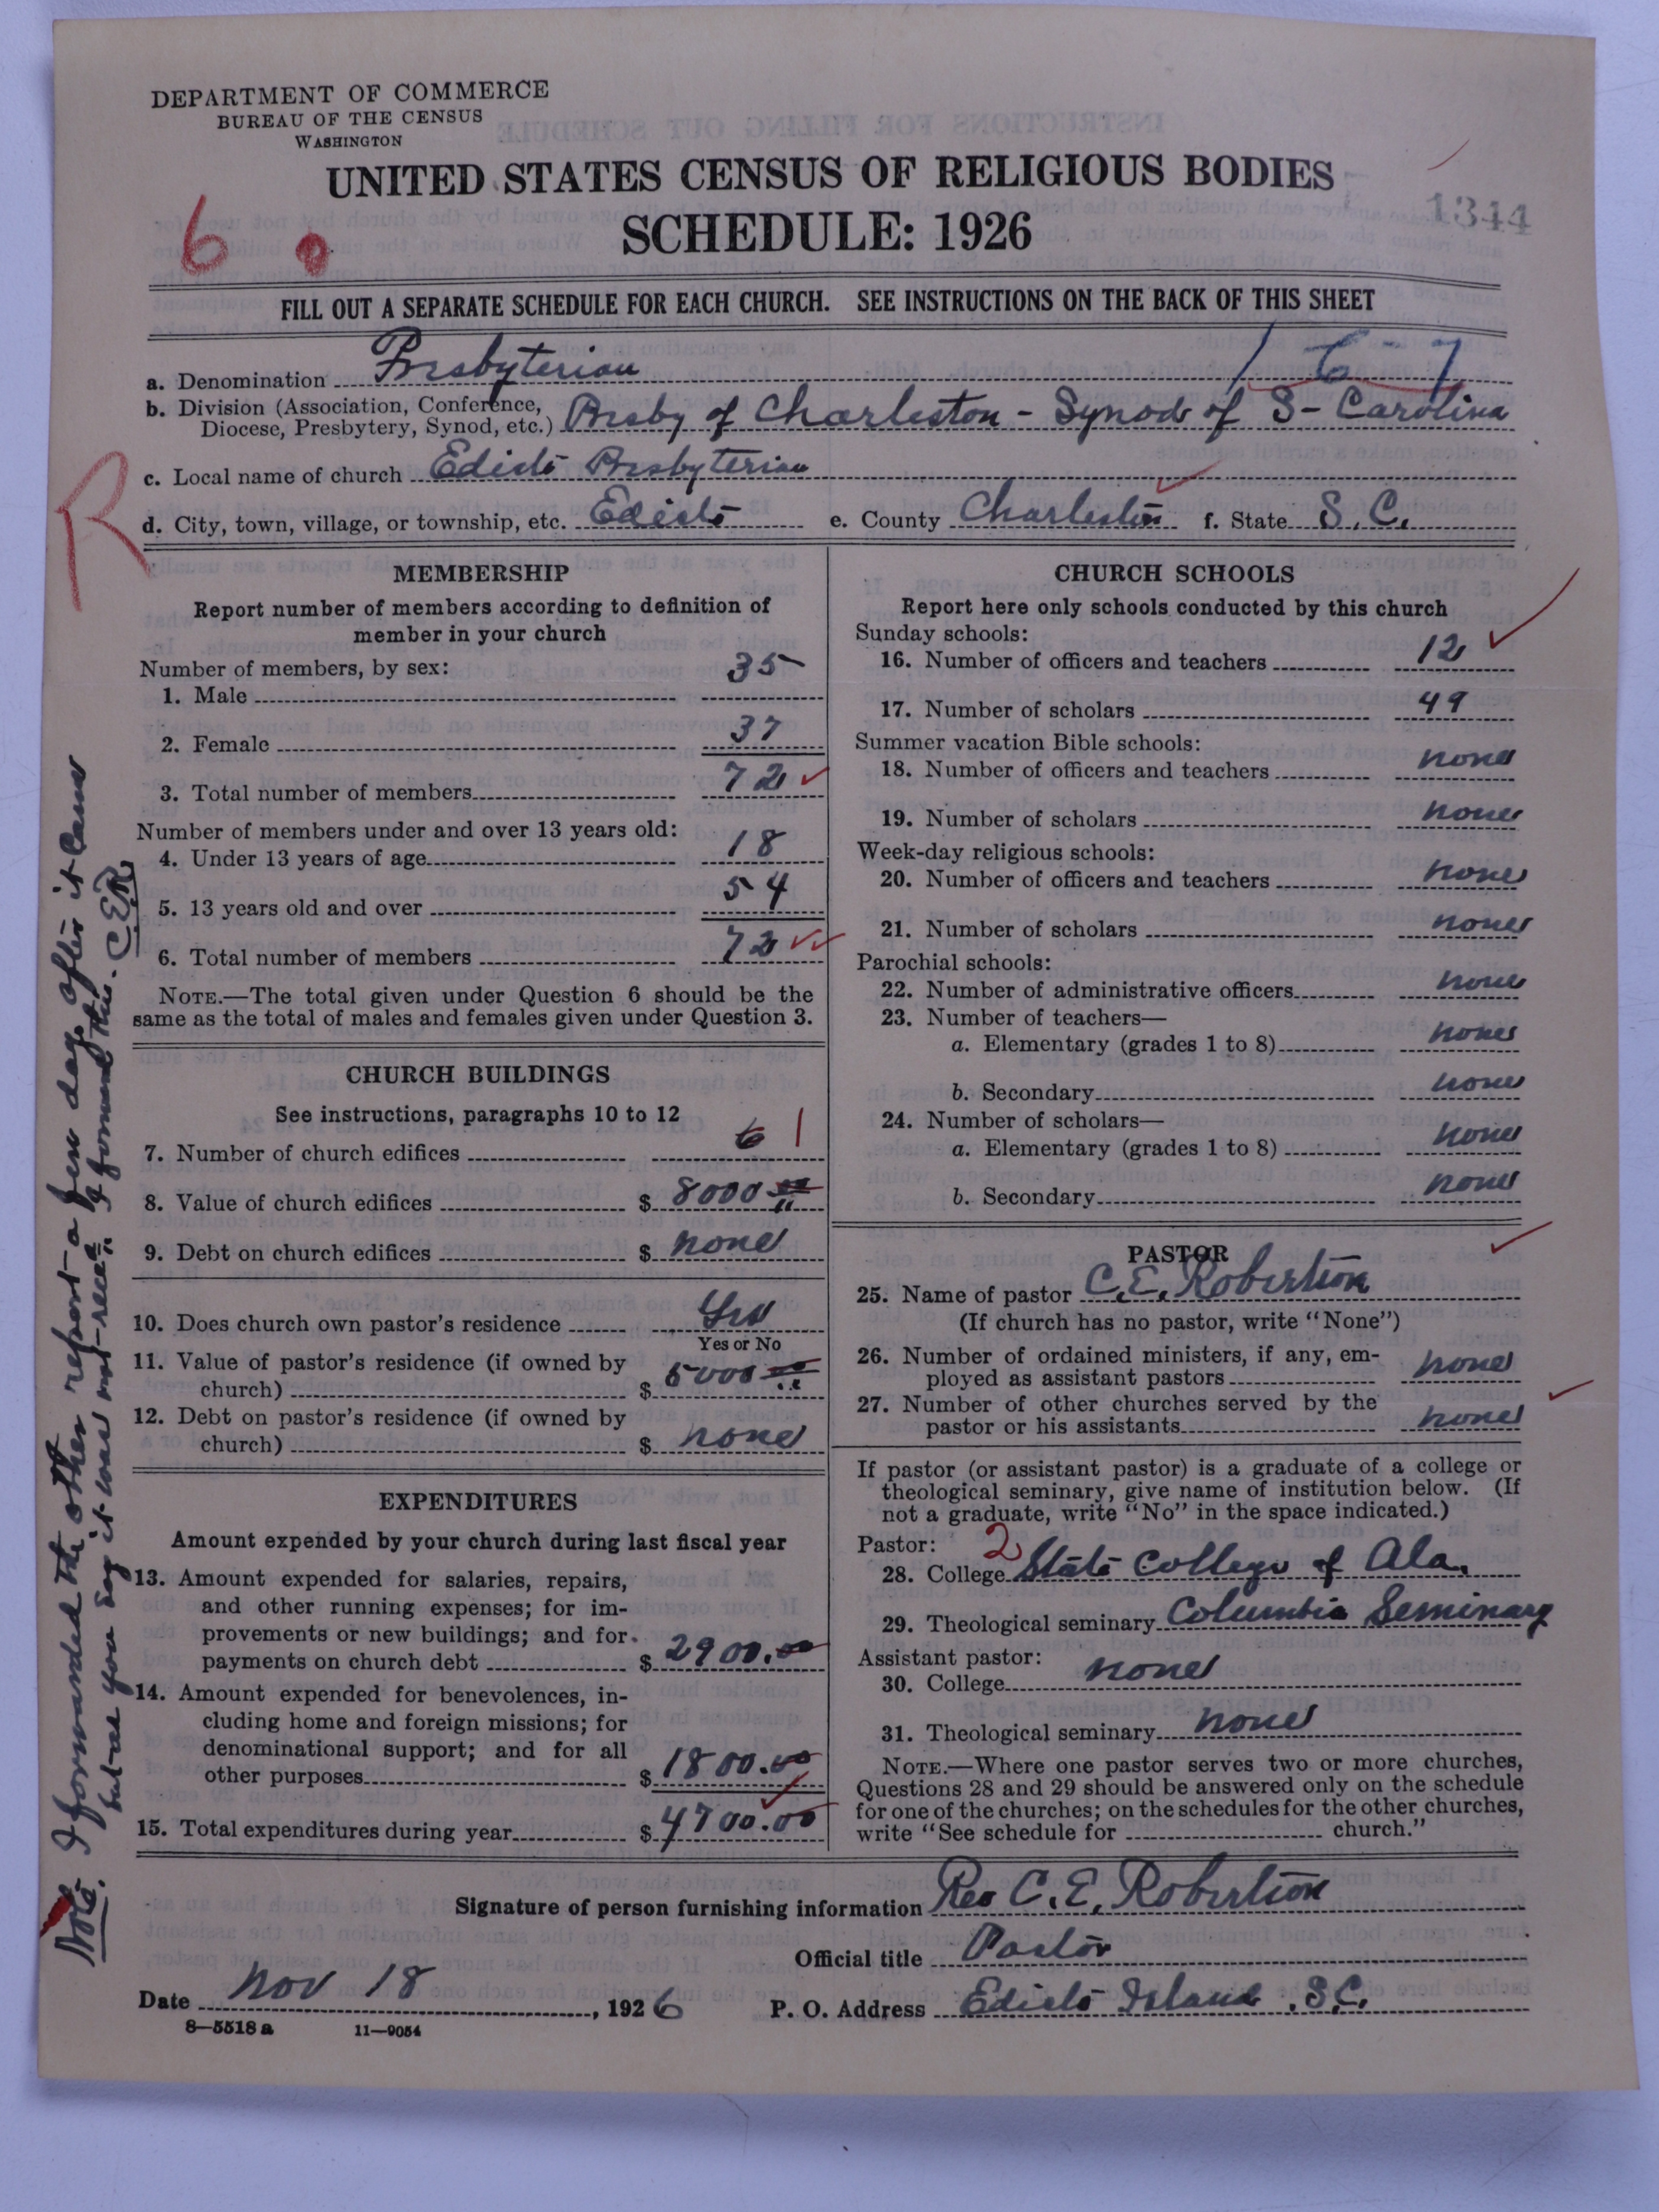 DEPARTMENT OF COMMERCE
BUREAU OF THE CENSUS
WASHINGTON
UNITED STATES CENSUS OF RELIGIOUS BODIES
SCHEDULE: 1926
1344
6
FILL OUT A SEPARATE SCHEDULE FOR EACH CHURCH. SEE INSTRUCTIONS ON THE BACK OF THIS SHEET
1-6-7
a. Denomination Presbyterian
b. Division (Association, Conference, Diocese, Presbytery, Synod, etc.) Presby of Charleston - Synod of S- Carolina
c. Local name of church Edisto Presbyterian
d. City, town, village, or township, etc. Edisto e. County Charleston f. State S.C.
R
MEMBERSHIP
Report number of members according to definition of
member in your church
Number of members, by sex:
1. Male 35
2. Female 37
3. Total number of members 72
Number of members under and over 13 years old:
4. Under 13 years of age 18
5. 13 years old and over 54
6. Total number of members 72
NOTE.—The total given under Question 6 should be the
same as the total of males and females given under Question 3.
CHURCH BUILDINGS
See instructions, paragraphs 10 to 12
7. Number of church edifices 6 1
8. Value of church edifices $ 8000
9. Debt on church edifices $ none
10. Does church own pastor's residence Yes
Yes or No
11. Value of pastor's residence (if owned by
church) $ 5000
12. Debt on pastor's residence (if owned by
church) $ none
EXPENDITURES
Amount expended by your church during last fiscal year
13. Amount expended for salaries, repairs,
and other running expenses; for im-
provements or new buildings; and for
payments on church debt $ 2900.00
14. Amount expended for benevolences, in-
cluding home and foreign missions; for
denominational support; and for all
other purposes $ 1800.00
15. Total expenditures during year $ 4700.00
CHURCH SCHOOLS
Report here only schools conducted by this church
Sunday schools:
16. Number of officers and teachers 12
17. Number of scholars 49
Summer vacation Bible schools:
18. Number of officers and teachers none
19. Number of scholars none
Week-day religious schools:
20. Number of officers and teachers none
21. Number of scholars none
Parochial schools:
22. Number of administrative officers none
23. Number of teachers—
a. Elementary (grades 1 to 8) none
b. Secondary none
24. Number of scholars—
a. Elementary (grades 1 to 8) none
b. Secondary none
PASTOR
25. Name of pastor C.E. Robertson
(If church has no pastor, write "None")
26. Number of ordained ministers, if any, em-
ployed as assistant pastors none
27. Number of other churches served by the
pastor or his assistants none
If pastor (or assistant pastor) is a graduate of a college or
theological seminary, give name of institution below. (If
not a graduate, write "No" in the space indicated.)
Pastor: 2
28. College State College of Ala.
29. Theological seminary Columbia Seminary
Assistant pastor:
30. College none
31. Theological seminary none
NOTE.—Where one pastor serves two or more churches,
Questions 28 and 29 should be answered only on the schedule
for one of the churches; on the schedules for the other churches,
write "See schedule for church."
Signature of person furnishing information Rev C.E. Robertson
Official title Pastor
Date Nov 18, 1926 P. O. Address Edisto Island, S.C.
8—5518 a 11—9054
Note. I forwarded the other report a few days after it came
but as you say it was not rece'd. I forward this. C.E.R.